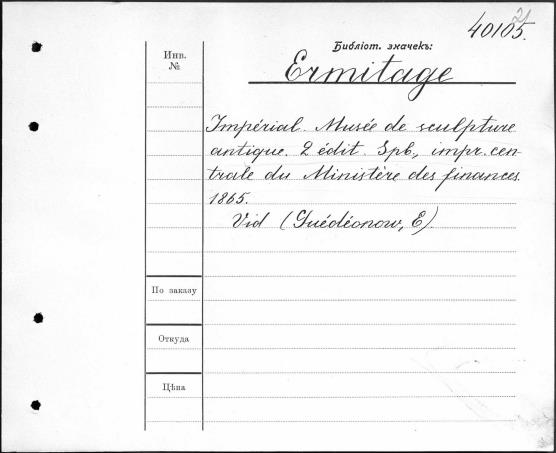 21
40105.
Библіот. значекъ:
Инв.
№
Ermitage
Impérial. Musée de sculpture
antique. 2 édit. Spb., impr. cen-
trale du Ministère des finances.
1865.
Vid (Guédéonow, E).
По заказу
Откуда
Цѣна